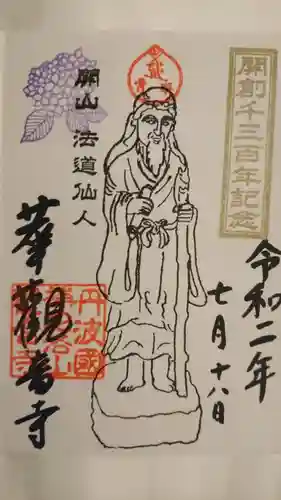 開創千三百年記念
令和二年
七月十八日
開山 法道仙人
華觀音寺
丹波國